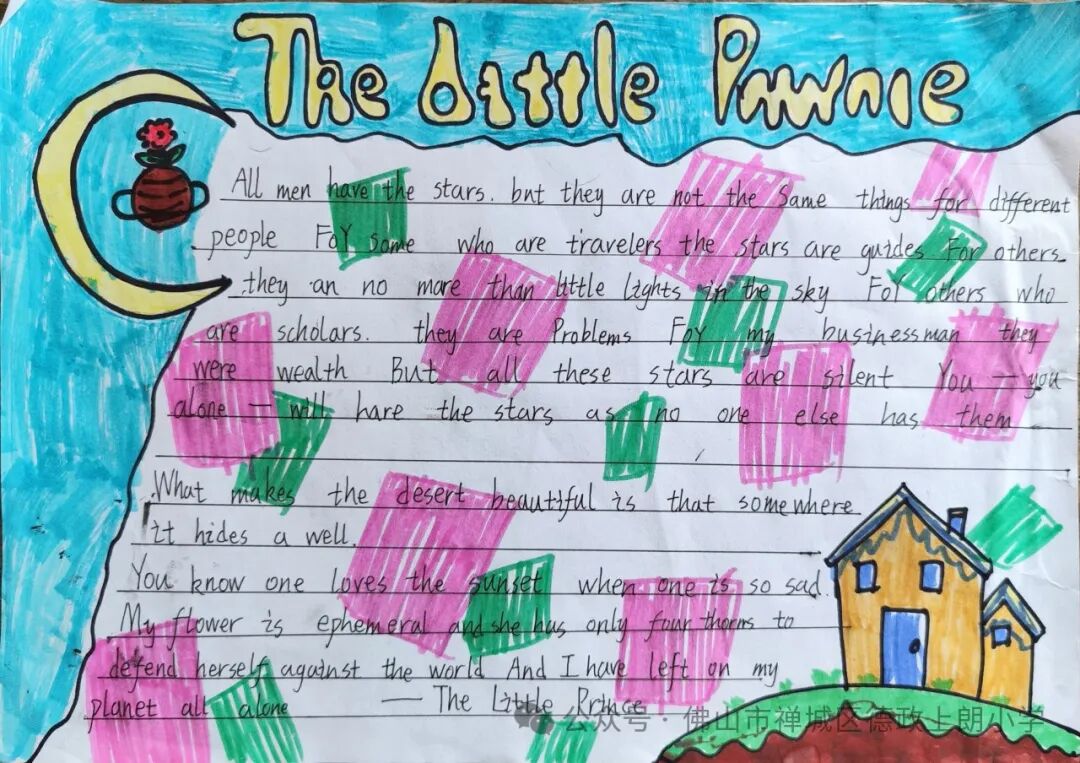 The Little Prince
All men have the stars. but they are not the Same things for different
people FoY some who are travelers the stars are guides For others
they an no more than little lights in the sky FoY others who
are scholars. they are Problems FoY my businessman they
were wealth But all these stars are silent You — you
alone — will hare the stars as no one else has them
What makes the desert beautiful is that somewhere
it hides a well.
You know one loves the sunset when one is so sad.
My flower is ephemeral and she has only four thorns to
defend herself against the world And I have left on my
planet all alone — The Little Prince
公众号·佛山市禅城区德政上朗小学